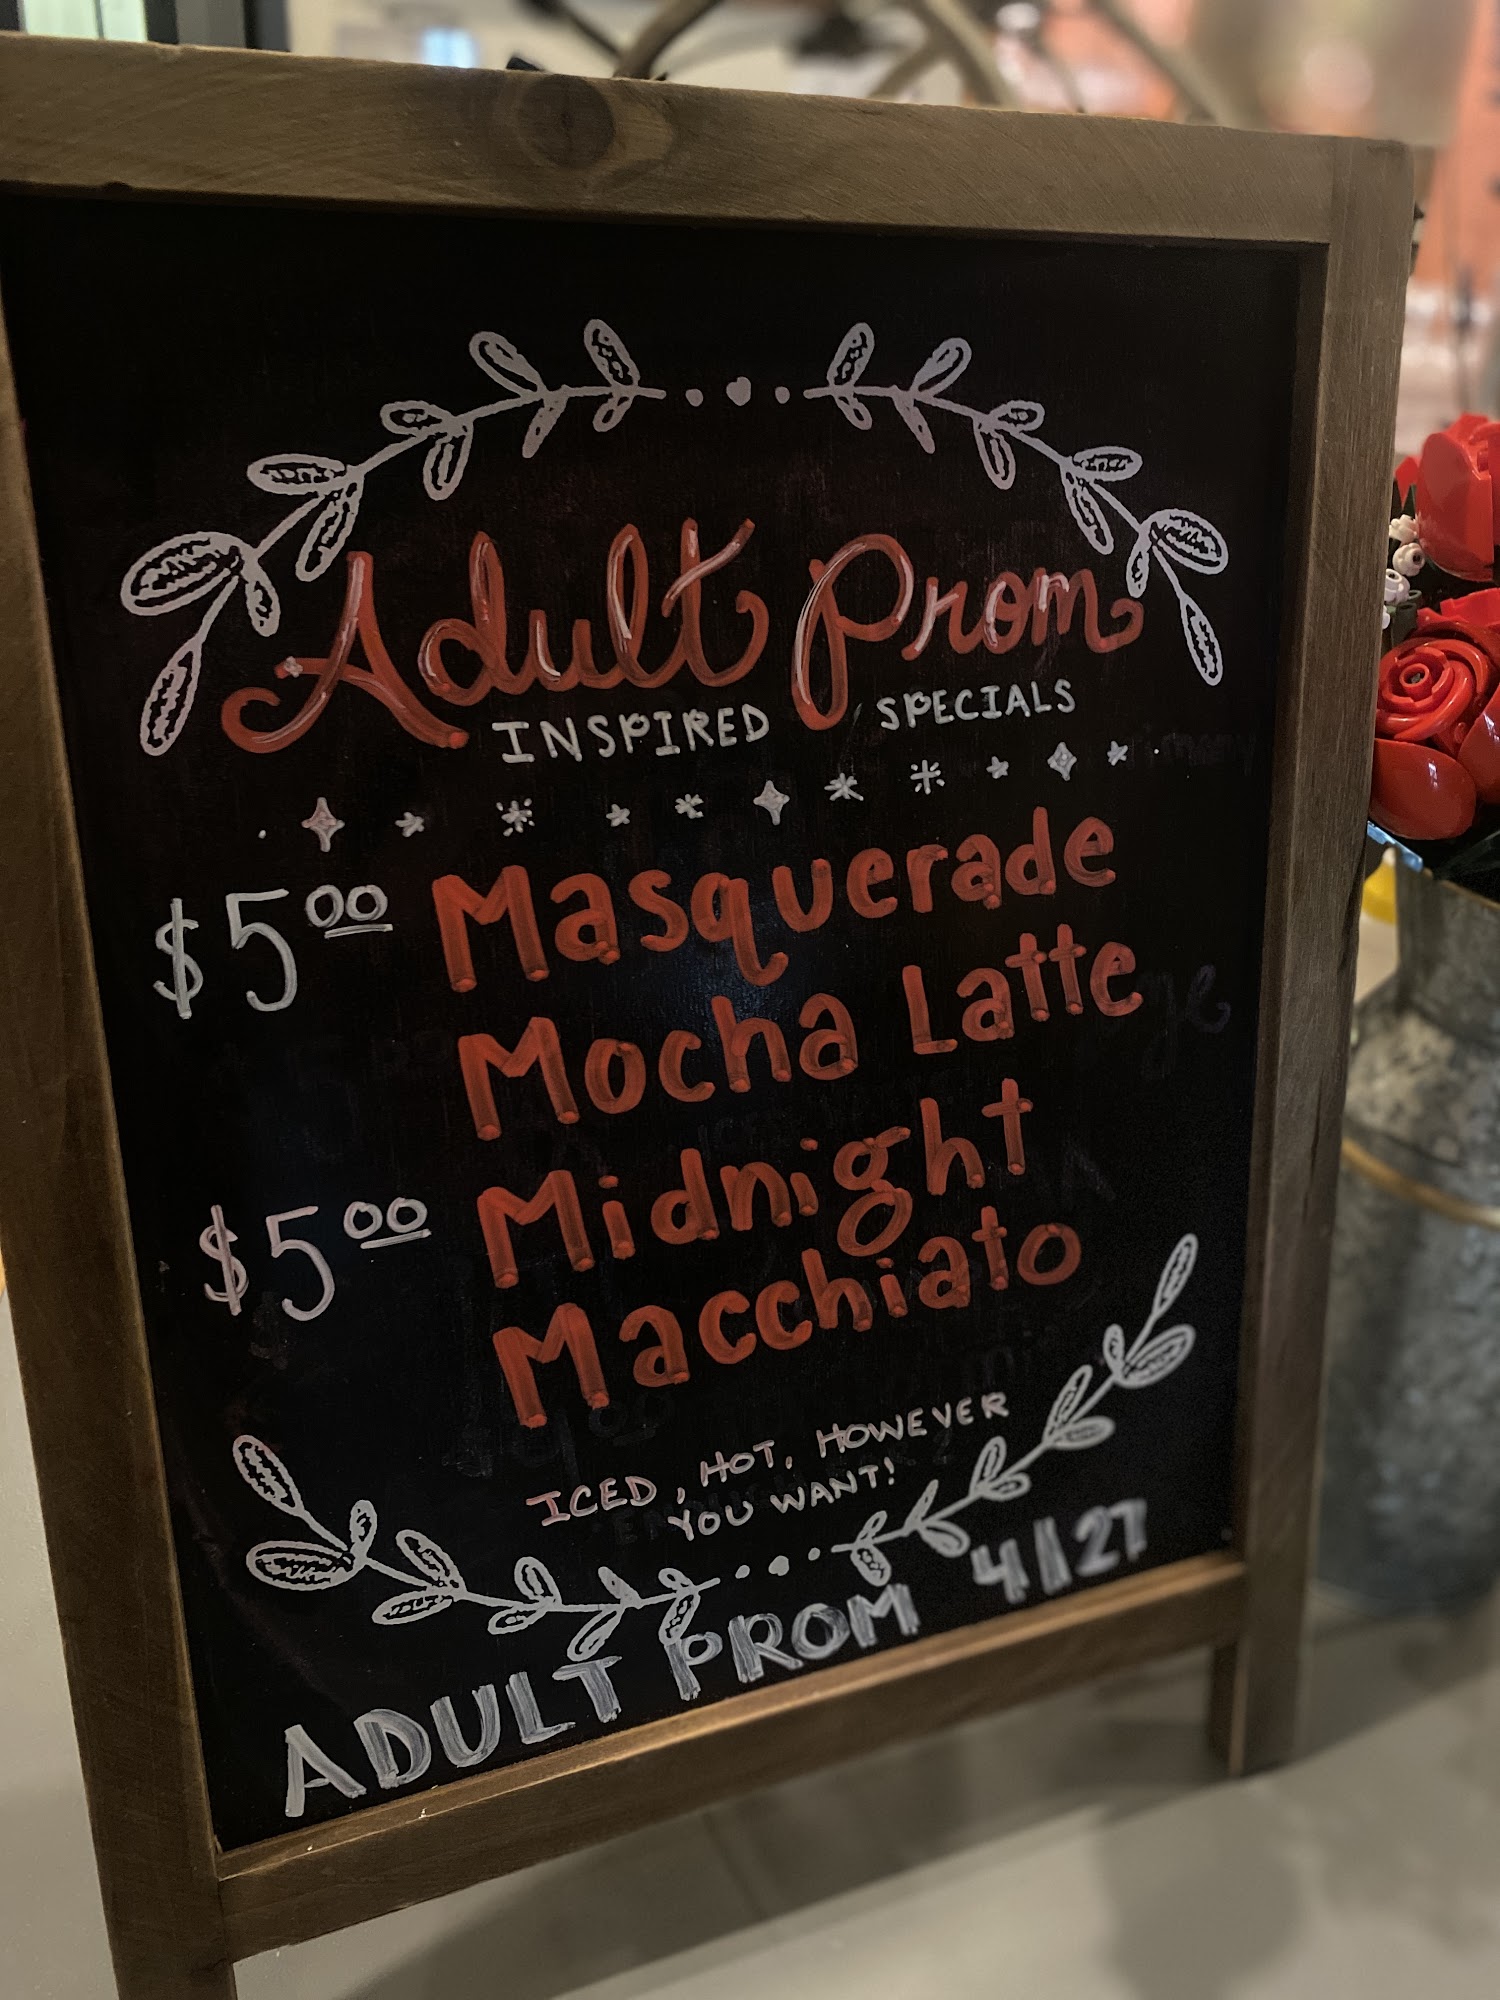 Adult Prom
INSPIRED SPECIALS
$5.00 Masquerade
Mocha Latte
$5.00 Midnight
Macchiato
ICED, HOT, HOWEVER
YOU WANT!
ADULT PROM 4/27